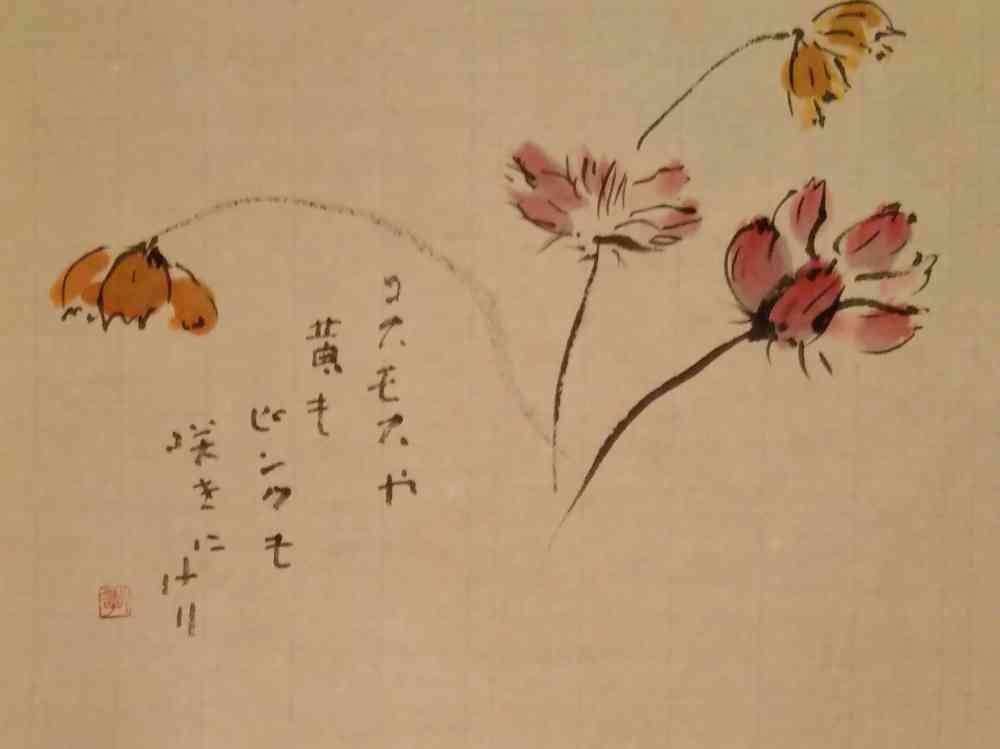 コスモスや
黄も
ピンクも
咲きにけり